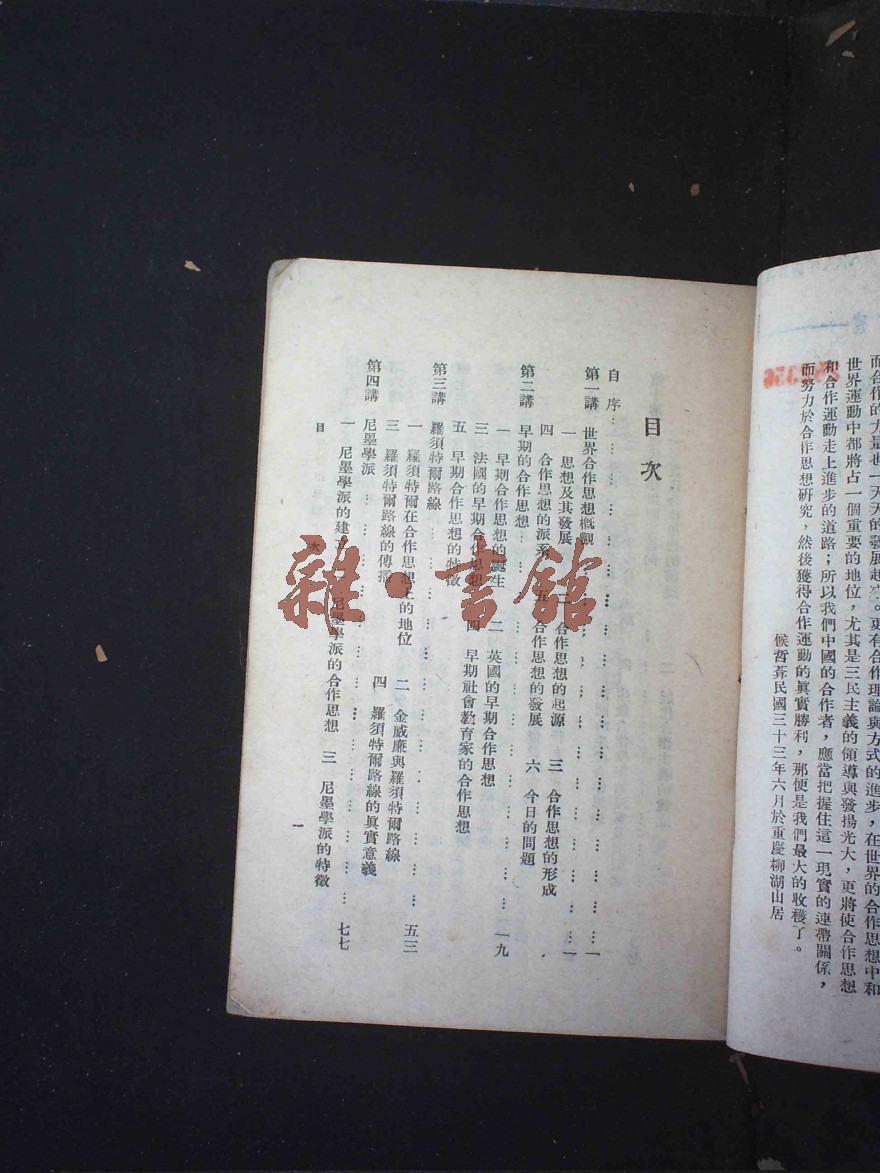 而合作的力量也一天天的發展起來。更有合作理論與方式的進步，在世界的合作思想中和
世界運動中都將占一個重要的地位，尤其是三民主義的領導與發揚光大，更將使合作思想
和合作運動走上進步的道路；所以我們中國的合作者，應當把握住這一現實的連帶關係，
而努力於合作思想研究，然後獲得合作運動的眞實勝利，那便是我們最大的收穫了。
侯哲葊民國三十三年六月於重慶柳湖山居
目次
自序……………………………一
第一講 世界合作思想概觀……………………………一
一 思想及其發展 二 合作思想的起源 三 合作思想的形成
四 合作思想的派系 五 合作思想的發展 六 今日的問題
第二講 早期的合作思想……………………………一九
一 早期合作思想的誕生 二 英國的早期合作思想
三 法國的早期合作思想 四 早期社會教育家的合作思想
五 早期合作思想的特徵
第三講 羅須特爾路線……………………………五三
一 羅須特爾在合作思想上的地位 二 金威廉與羅須特爾路線
三 羅須特爾路線的傳播 四 羅須特爾路線的眞實意義
第四講 尼墨學派……………………………七七
一 尼墨學派的建立 二 尼墨學派的合作思想 三 尼墨學派的特徵
目次
一
雜·書館